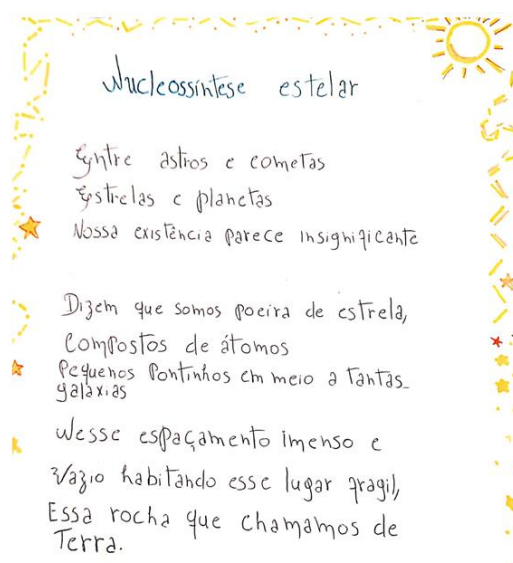 Nucleossíntese estelar
Entre astros e cometas
Estrelas e planetas
Nossa existência parece insignificante
Dizem que somos poeira de estrela,
Compostos de átomos
Pequenos Pontinhos em meio a Tantas
galáxias
Nesse espaçamento imenso e
Vazio habitando esse lugar fragil,
Essa rocha que chamamos de
Terra.